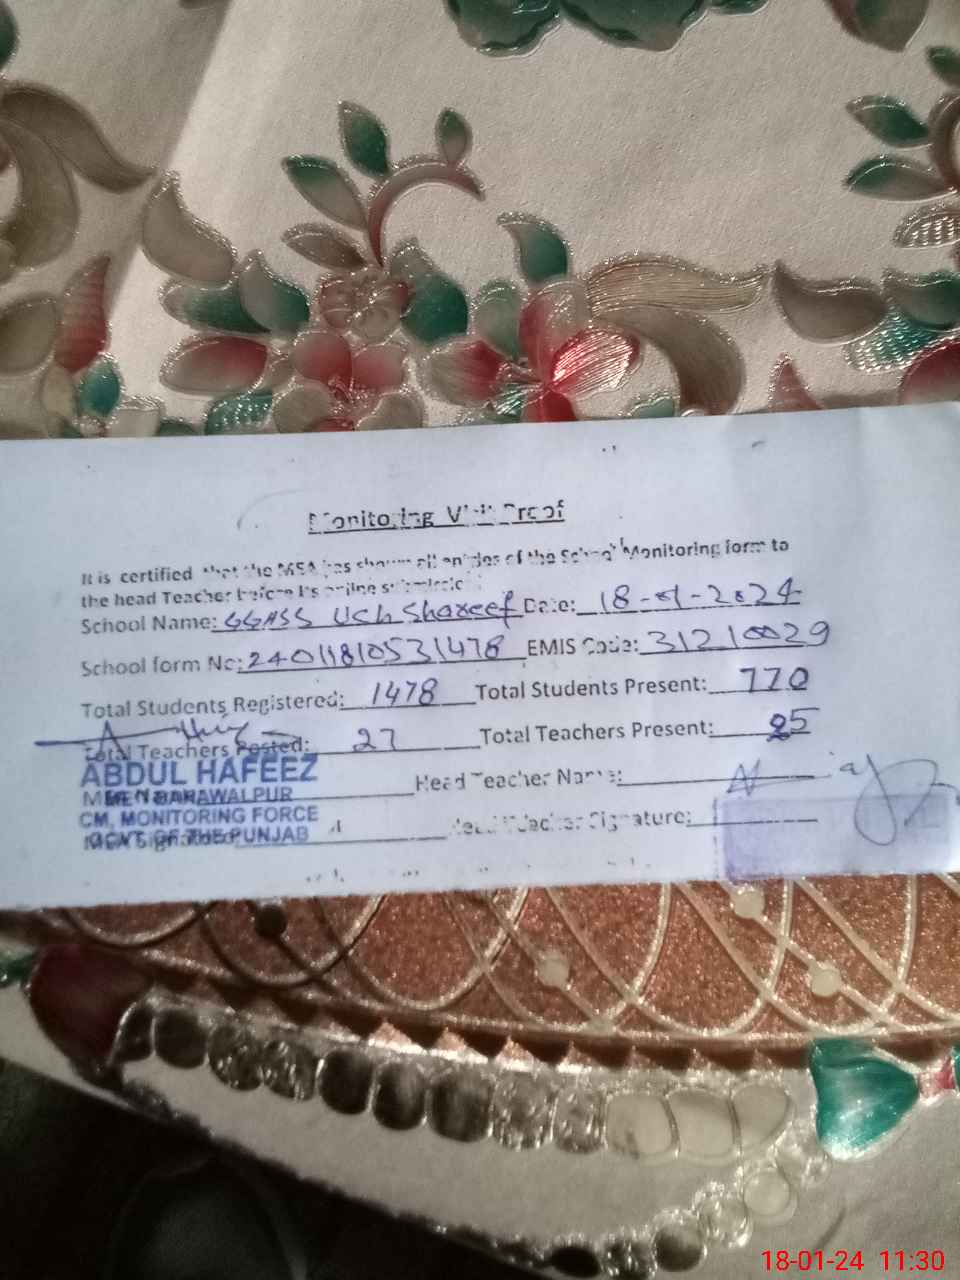 Monitoring Visit Proof
It is certified that the MEA has shown all entries of the School Monitoring form to
the head Teacher before its online submission
School Name: GGHSS Uch Shareef Date: 18-01-2024
School form No: 24011810531478 EMIS Code: 31210029
Total Students Registered: 1478 Total Students Present: 770
Total Teachers Posted: 27 Total Teachers Present: 25
ABDUL HAFEEZ
Head Teacher Name:
BAHAWALPUR
CM, MONITORING FORCE
Head Teacher Signature:
GOVT OF THE PUNJAB
18-01-24 11:30